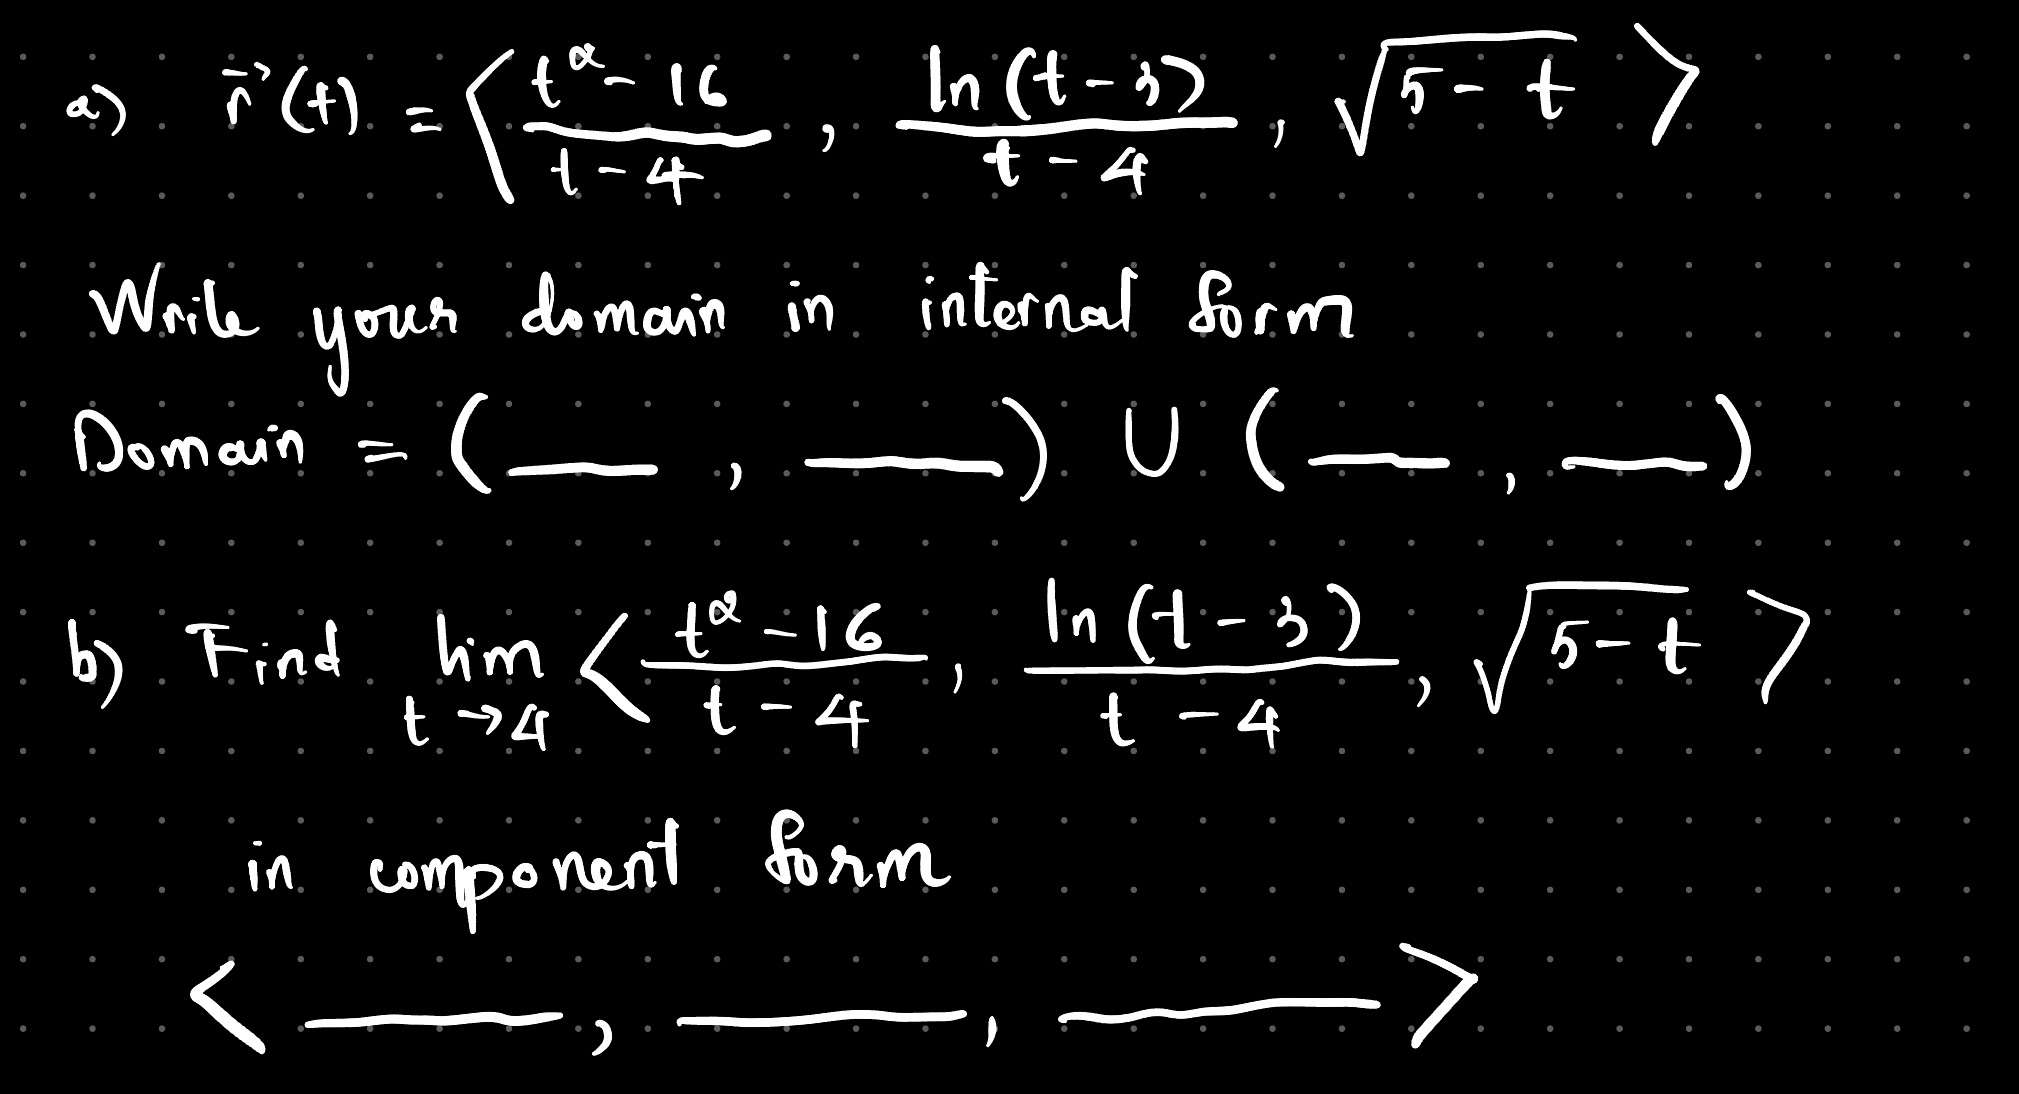 a) r⃗(t) = < (t² - 16)/(t - 4) , ln(t - 3)/(t - 4) , √(5 - t) >
Write your domain in internal form
Domain = (__ , __) ∪ (__ , __)
b) Find lim t→4 < (t² - 16)/(t - 4) , ln(t - 3)/(t - 4) , √(5 - t) >
in component form
< __ , __ , __ >